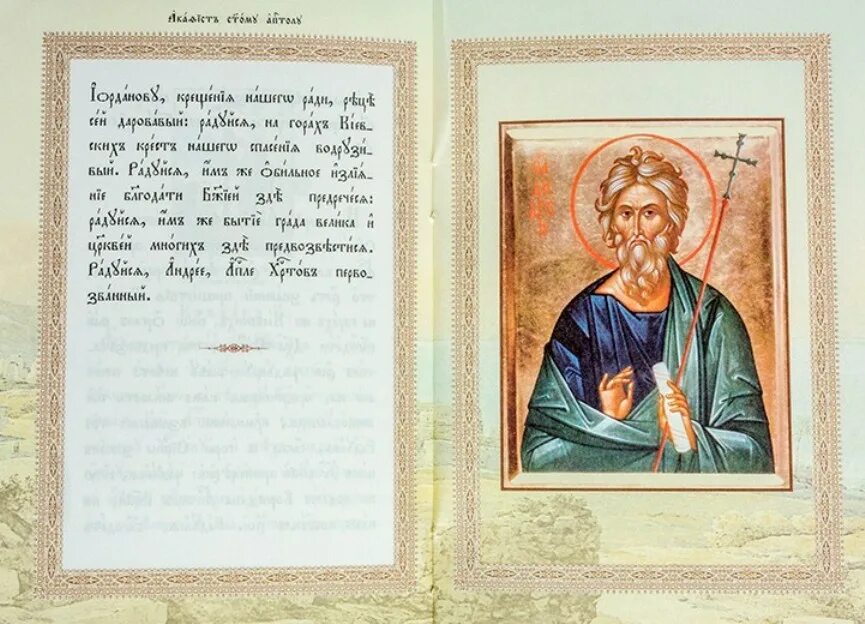 А҆ка́ѳїстъ ст҃о́мꙋ а҆пⷭ҇толꙋ
І҆ѻрда́новꙋ, креще́нїѧ на́шегѡ ра́ди, рѣцѣ̀
се́й дарова́вый: ра́дꙋйсѧ, на гора́хъ Кі́ев-
скихъ кре́стъ на́шегѡ спасе́нїѧ водрꙋзи́-
вый. Ра́дꙋйсѧ, и҆́мъ же ѻ҆би́льное и҆злїѧ́-
нїе блгⷣода́ти Бж҃їей здѣ̀ предрече́сѧ:
ра́дꙋйсѧ, и҆́мъ же бытїѐ гра́да вели́ка и҆
цр҃кве́й мно́гихъ здѣ̀ предвозвѣсти́сѧ.
Ра́дꙋйсѧ, А҆ндре́е, А҆пⷭ҇ле Хрⷭ҇то́въ перво-
зва́нный.